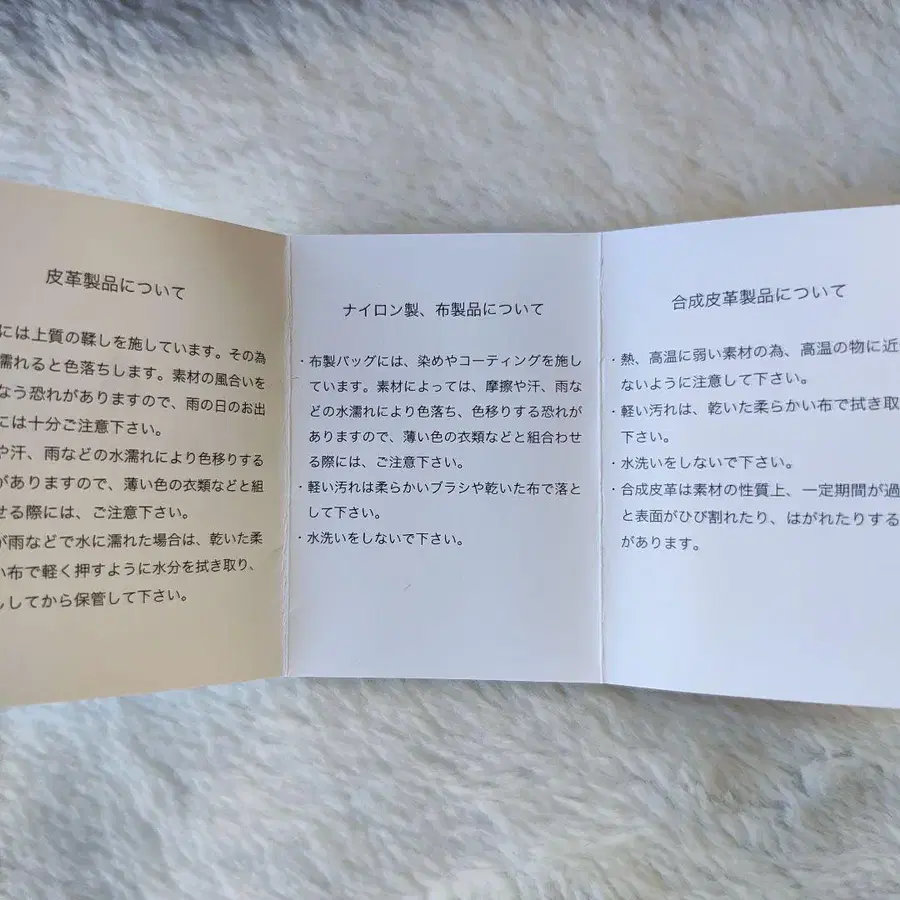 皮革製品について
には上質の鞣しを施しています。その為
濡れると色落ちします。素材の風合いを
なう恐れがありますので、雨の日のお出
には十分ご注意下さい。
や汗、雨などの水濡れにより色移りする
がありますので、薄い色の衣類などと組
せる際には、ご注意下さい。
が雨などで水に濡れた場合は、乾いた柔
い布で軽く押すように水分を拭き取り、
してから保管して下さい。
ナイロン製、布製品について
・布製バッグには、染めやコーティングを施し
ています。素材によっては、摩擦や汗、雨な
どの水濡れにより色落ち、色移りする恐れが
ありますので、薄い色の衣類などと組合わせ
る際には、ご注意下さい。
・軽い汚れは柔らかいブラシや乾いた布で落と
して下さい。
・水洗いをしないで下さい。
合成皮革製品について
・熱、高温に弱い素材の為、高温の物に近
ないように注意して下さい。
・軽い汚れは、乾いた柔らかい布で拭き取
下さい。
・水洗いをしないで下さい。
・合成皮革は素材の性質上、一定期間が過
と表面がひび割れたり、はがれたりする
があります。